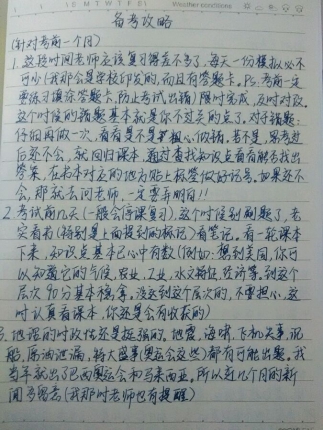 备考攻略
(针对考前一个月)
1. 这段时间老师应该复习得差不多了，每天一份模拟必不
可少(我那会是学校印发的，而且有答题卡。Ps.考前一定
要练习填涂答题卡，防止考试出错)限时完成，及时对改。
这个时候的错题基本就是你不过关的点了。对待错题：
仔细再做一次，看看是不是粗心做错，若不是，思考过
后还不会，就回归课本，通过查找知识点看看能否找出
答案，在书本对应的地方贴上标签做好记号。如果还不
会，那就去问老师，一定要弄明白！！
2. 考试前几天(一般会停课复习)，这个时候别刷题了，老
实看书(特别是上面提到的标记)看笔记。有一轮课本
下来，知识点基本已心中有数(例如：想到美国，你可
以知道它的气候，农业，工业，水文特征，经济等。到这个
层次90分基本稳拿。没达到这个层次的，不要担心，这
时认真看课本，你还是会有收获的)
3. 地理的时政性还是挺强的。地震，海啸，飞机失事，沉
船，原油泄漏，特大盛事(奥运会这些)都有可能出题。我
当年就出了巴西奥运会和马来西亚。所以近几个月的新
闻多留意(我那时老师也有提醒)